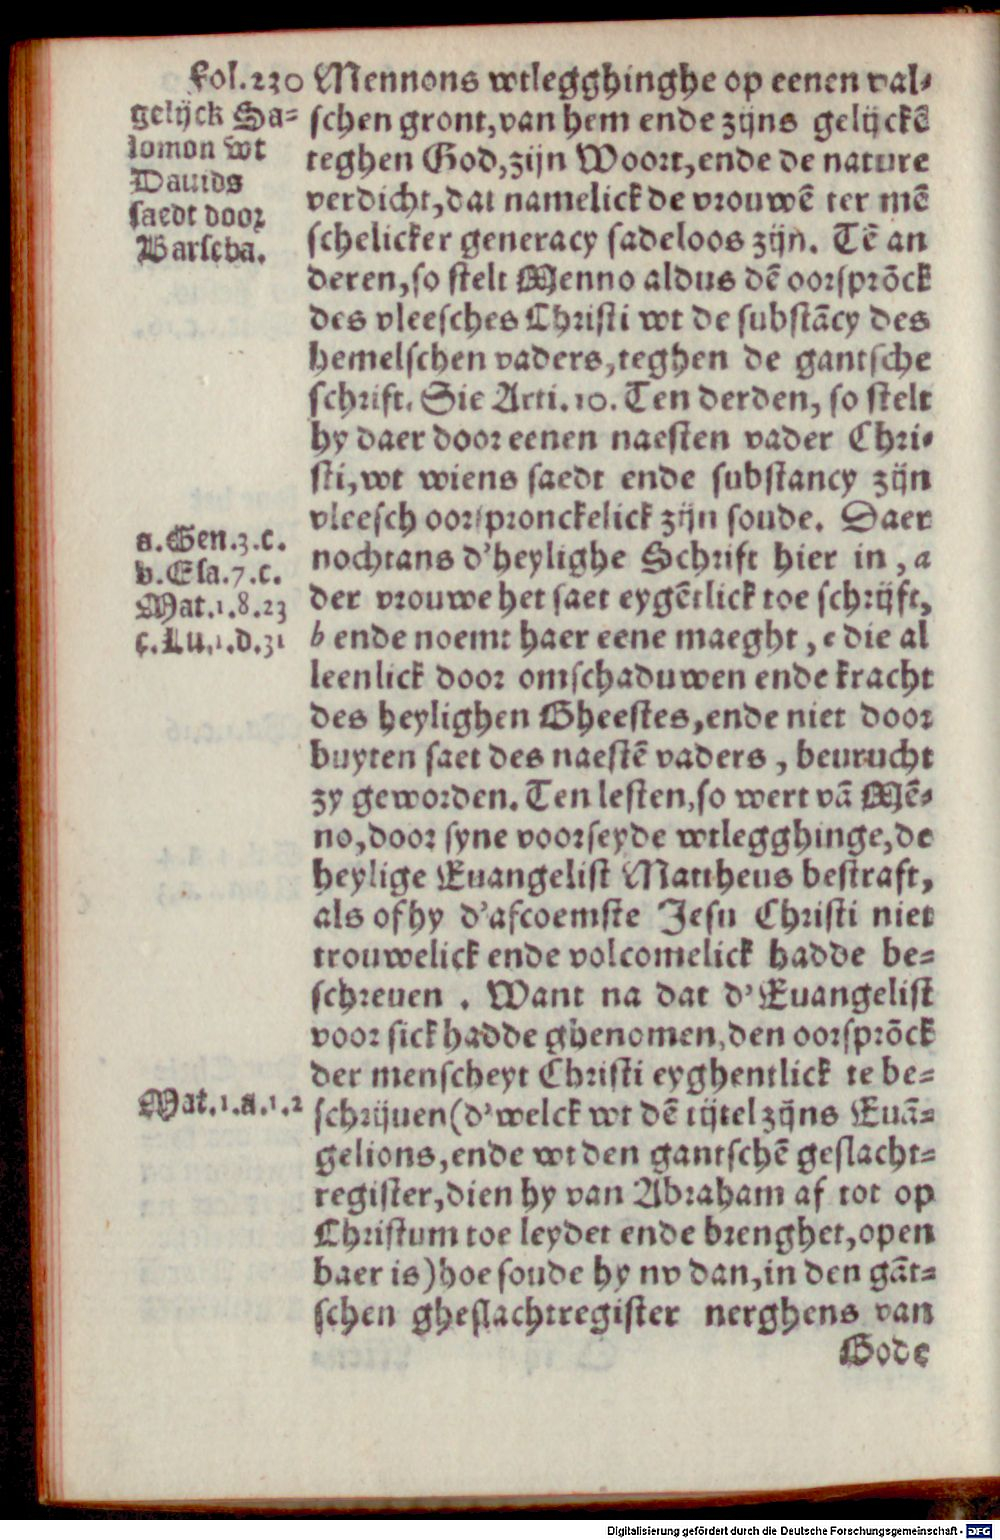 Fol. 230
gelijck Sa=
lomon wt
Dauids
saedt door
Barseba.
Mennons wtlegghinghe op eenen val=
schen gront, van hem ende zijns gelijckē
teghen God, zijn Woort, ende de nature
verdicht, dat namelick de vrouwē ter mē
schelicker generacy sadeloos zijn. Tē an
deren, so stelt Menno aldus dē oorsprōck
des vleesches Christi wt de substācy des
hemelschen vaders, teghen de gantsche
schrift. Sie Arti. 10. Ten derden, so stelt
hy daer door eenen naesten vader Chri=
sti, wt wiens saedt ende substancy zijn
vleesch oorspronckelick zijn soude. Daer
nochtans d'heylighe Schrift hier in, a
der vrouwe het saet eygētlick toe schrijft,
b ende noemt haer eene maeght, c die al
leenlick door omschaduwen ende kracht
des heylighen Gheestes, ende niet door
buyten saet des naestē vaders, beurucht
zy geworden. Ten lesten, so wert vā Mē=
no, door syne voorseyde wtlegghinge, de
heylige Euangelist Mattheus bestraft,
als of hy d'afcoemste Jesu Christi niet
trouwelick ende volcomelick hadde be=
schreuen. Want na dat d'Euangelist
voor sick hadde ghenomen, den oorsprōck
der menscheyt Christi eyghentlick te be=
schrijuen (d'welck wt dē tijtel zijns Euā=
gelions, ende wt den gantschē geslacht=
register, dien hy van Abraham af tot op
Christum toe leydet ende brenghet, open
baer is) hoe soude hy nv dan, in den gāt=
schen gheslachtregister nerghens van
Gode
a. Gen. 3. c.
b. Esa. 7. c.
Mat. 1. 8. 23
c. Lu. 1. d. 31
Mat. 1. a. 1. 2
Digitalisierung gefördert durch die Deutsche Forschungsgemeinschaft - DFG